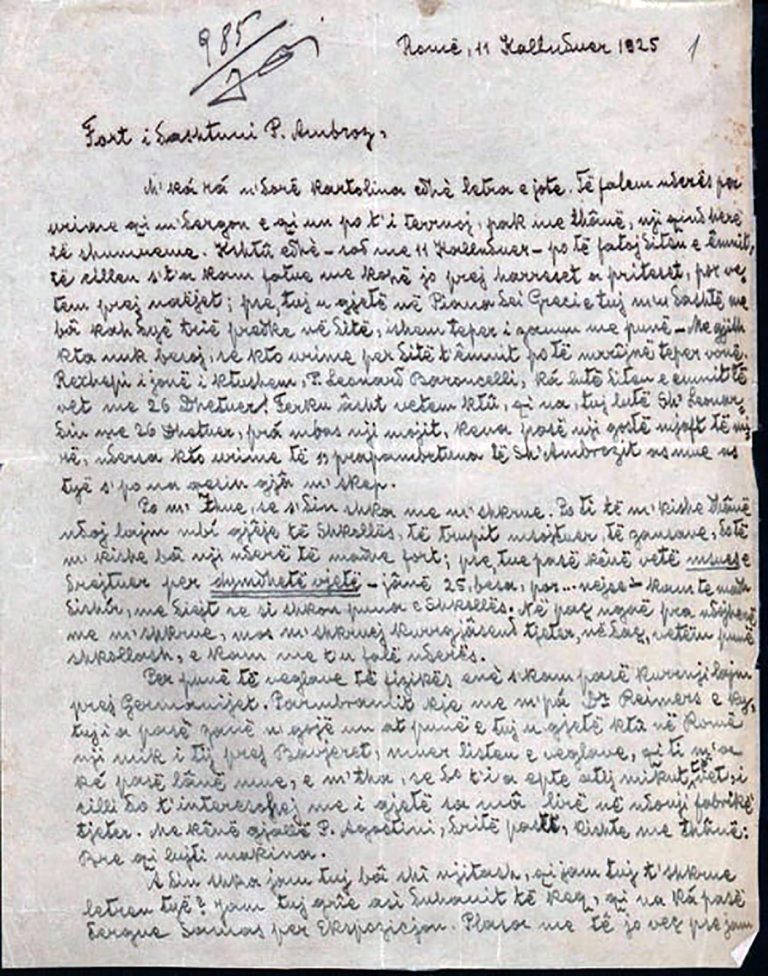 985
Romë, 11 Kallnduer 1925 1
Fort i dashtuni P. Ambroz,
M'ká rá n'dorë kartolina edhè letra e jote. Të falem nderës per
urime qi m'dergon e qi un po t'i ternoj, pak me thânë, nji qind herë
të shumueme. Kshtû edhè – sod me 11 Kallnduer – po të fatoj diten e êmnit,
të cillen s't'a kam fatue me kohë jo prej harreset a priteset, por ve-
tem prej ; pse, tuj u gjetë në Piana dei Greci e tuj m'u dashtë me
bâ kah dyë trië predke në ditë, ishem teper i me punë – Me gjith
kta nuk besoj, se kto urime per ditë t'êmnit po të mrrîjnë teper vonë.
Rexhepi i jonë i ktushem, P. Leonard Baroncelli, ká lutë diten e emnit të
vet me 26 Dhetuer! Ferku âsht vetem ktû, qi na, tuj lutë Sh' Leonar-
din me 26 Dhetuer, prá mbas nji mojit, kena pasë nji gostë mjaft të mi-
rë, ndersa kto urime të prapambetuna të Sh'Ambrozit as mue as
tyë s'po na qesin gjâ m'skep.
Po m' thue, se s'din shka me m'shkrue. Po ti të m'kishe dhânë
ndoj lajm mbí gjâje të Shkollës, të trupit msojtuer, të zansave, do të
m'kishe bâ nji nderë të madhe fort; pse, tue pasë kênë vetë msues e
drejtuer per dymdhetë vjetë – jânë 25, besa, por... nejse – kam te madh
dishir, me diejt se si shkon puna e Shkollës. Në paç ngoë pra ndojherë
me m'shkrue, mos m'shkruej kurrgjâsend tjeter, në daç, vetëm punë
shkollash, e kam me t'u falë nderës.
Per punë të veglave të fizikës enè s'kam pasë kurrnji lajm
prej Germanijet. Parmbramit kje me m'pá Dr Reimers e ky,
tuj i a pasë zanë n'gojë un at punë e tuj u gjetë ktû në Romë
nji mik i tij prej Bavjeret, muer listen e veglave, qi ti m'a
ké pasë lânë mue, e m'tha, se do t'i a epte atij mikut të vet, i
cilli do t'interesohej me i gjetë sa mâ lirë në ndonji fabrikë
tjeter. Me kênë gjallë P. Agostini, dritë pastë, kishte me thânë:
Bre qi lujti makina.
A din shka jam tuj bâ shî njitash, qi jam tuj t'shkrue
letren tyë? Jam tuj grîe asi duhanit të keq, qi na ká pasë
dergue per Ekspozicjon. Plasa me të jo veç pse jam